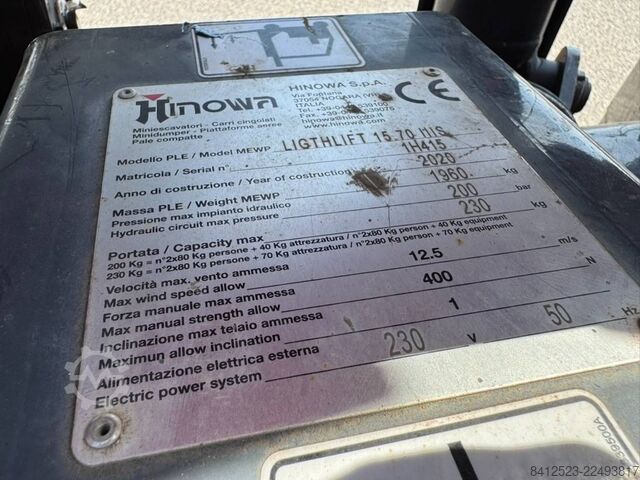 HINOWA
Miniescavatori - Carri cingolati
Minidumper - Piattaforme aeree
Pale compatte
HINOWA S.p.A.
Via Fontana
37054 NOGARA
ITALIA
hinowa@hinowa.it
www.hinowa.com
CE
Modello PLE / Model MEWP LIGTHLIFT 15.70 IIIS
Matricola / Serial n° 1H415
Anno di costruzione / Year of costruction 2020
Massa PLE / Weight MEWP 1960 kg
Pressione max impianto idraulico
Hydraulic circuit max pressure 200 bar
Portata / Capacity max 230 kg
200 Kg = n°2x80 Kg persone + 40 Kg attrezzatura / n°2x80 Kg person + 40 Kg equipment
230 Kg = n°2x80 Kg persone + 70 Kg attrezzatura / n°2x80 Kg person + 70 Kg equipment
Velocità max. vento ammessa
Max wind speed allow 12.5 m/s
Forza manuale max ammessa
Max manual strength allow 400 N
Inclinazione max telaio ammessa
Maximun allow inclination 1
Alimentazione elettrica esterna
Electric power system 230 v 50 Hz
8412523-22493817